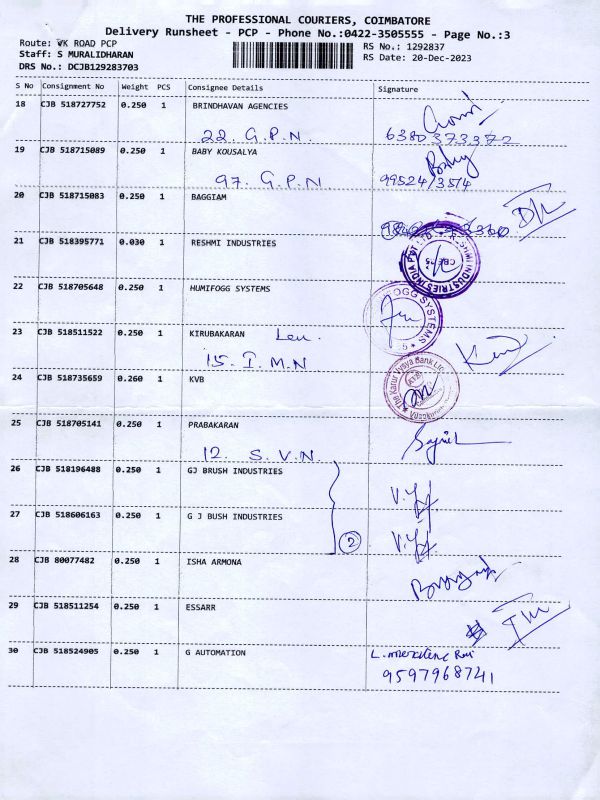 THE PROFESSIONAL COURIERS, COIMBATORE
Delivery Runsheet - PCP - Phone No.:0422-3505555 - Page No.:3
Route: VK ROAD PCP RS No.: 1292837
Staff: S MURALIDHARAN RS Date: 20-Dec-2023
DRS No.: DCJB129283703
S No Consignment No Weight PCS Consignee Details Signature
18 CJB 518727752 0.250 1 BRINDHAVAN AGENCIES
22. G.P.N 6380373372
19 CJB 518715089 0.250 1 BABY KOUSALYA Baby
97. G.P.N. 99524/3514
20 CJB 518715083 0.250 1 BAGGIAM
21 CJB 518395771 0.030 1 RESHMI INDUSTRIES
22 CJB 518705648 0.250 1 HUMIFOGG SYSTEMS
23 CJB 518511522 0.250 1 KIRUBAKARAN
15. I.M.N
24 CJB 518735659 0.260 1 KVB The Karur Vysya Bank Ltd
25 CJB 518705141 0.250 1 PRABAKARAN
12. S.V.N.
26 CJB 518196488 0.250 1 GJ BRUSH INDUSTRIES
27 CJB 518606163 0.250 1 G J BUSH INDUSTRIES 2
28 CJB 80077482 0.250 1 ISHA ARMONA
29 CJB 518511254 0.250 1 ESSARR
30 CJB 518524905 0.250 1 G AUTOMATION
9597968741